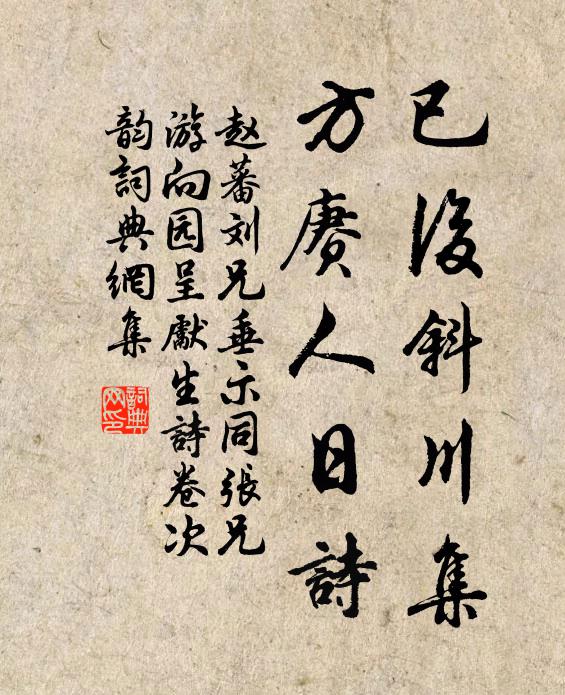 已後斜川集
方賡人日詩
赵蕃刘兄垂示同張兄
游向园呈獻生詩卷次
韵詞典網集
詞典
网印